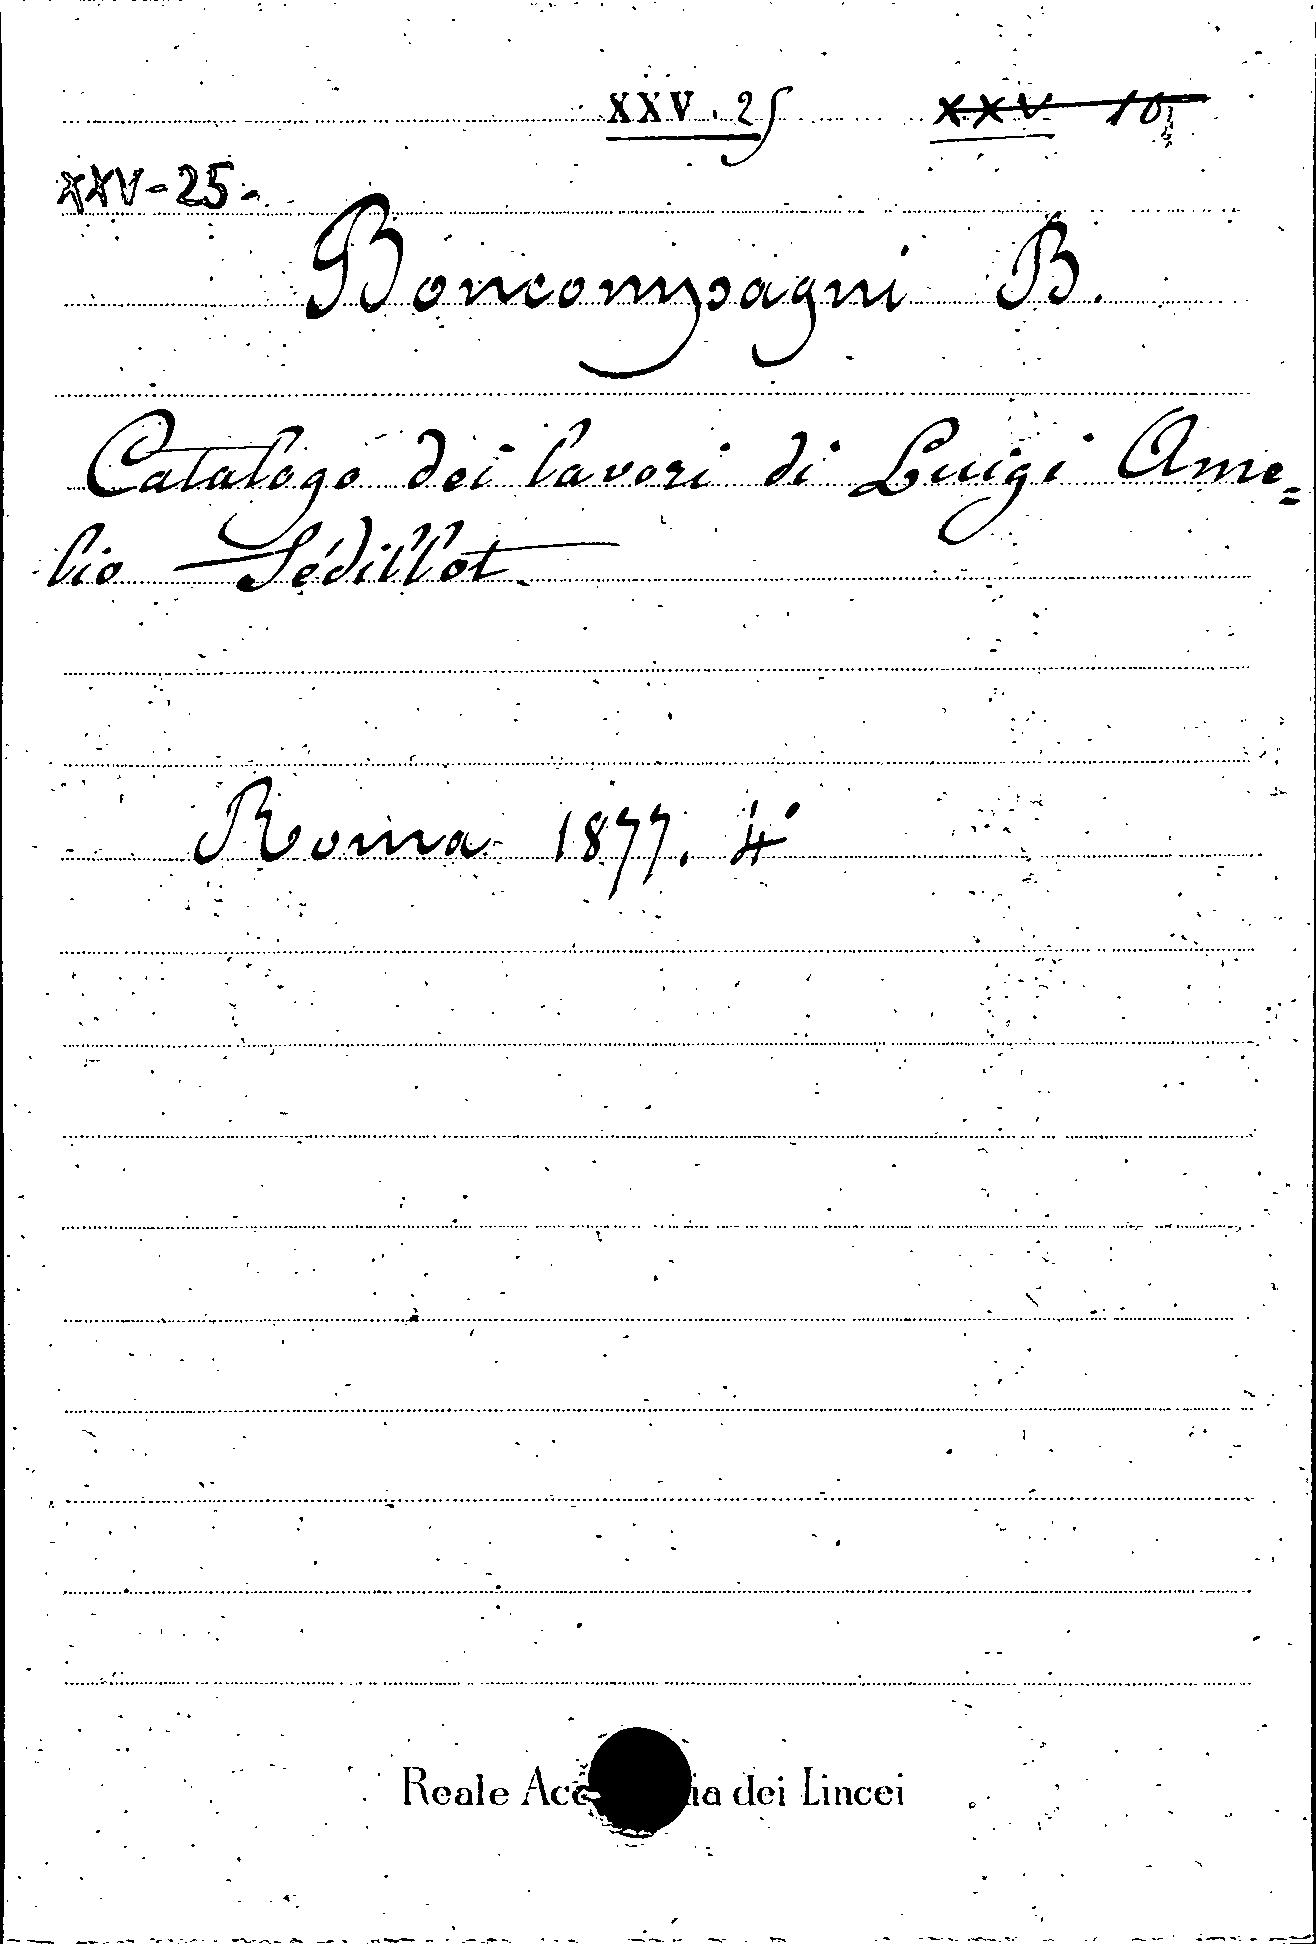 XXV. 25 XXV 10
XXV-25-
Boncompagni B.
Catalogo dei lavori di Luigi Ame=
lio Sédillot.
Roma 1877. 4°
Reale Acc ia dei Lincei